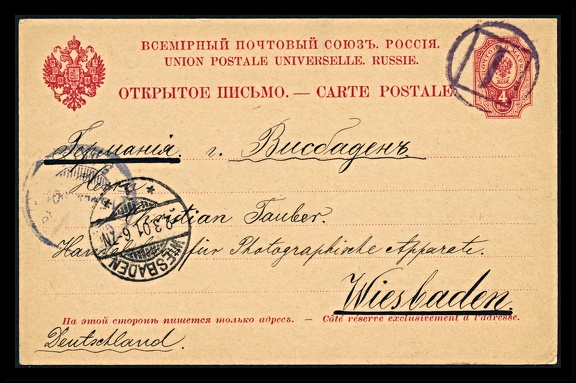 ВСЕМІРНЫЙ ПОЧТОВЫЙ СОЮЗЪ. РОССІЯ.
UNION POSTALE UNIVERSELLE. RUSSIE.
ОТКРЫТОЕ ПИСЬМО. — CARTE POSTALE.
4
Германія г. Висбаденъ
Christian Tauber.
Handlung für Photographische Apparate.
WIESBADEN
2.3.01. 6-7N
Wiesbaden.
На этой сторонѣ пишется только адресъ. — Côté réservé exclusivement à l'adresse.
Deutschland.